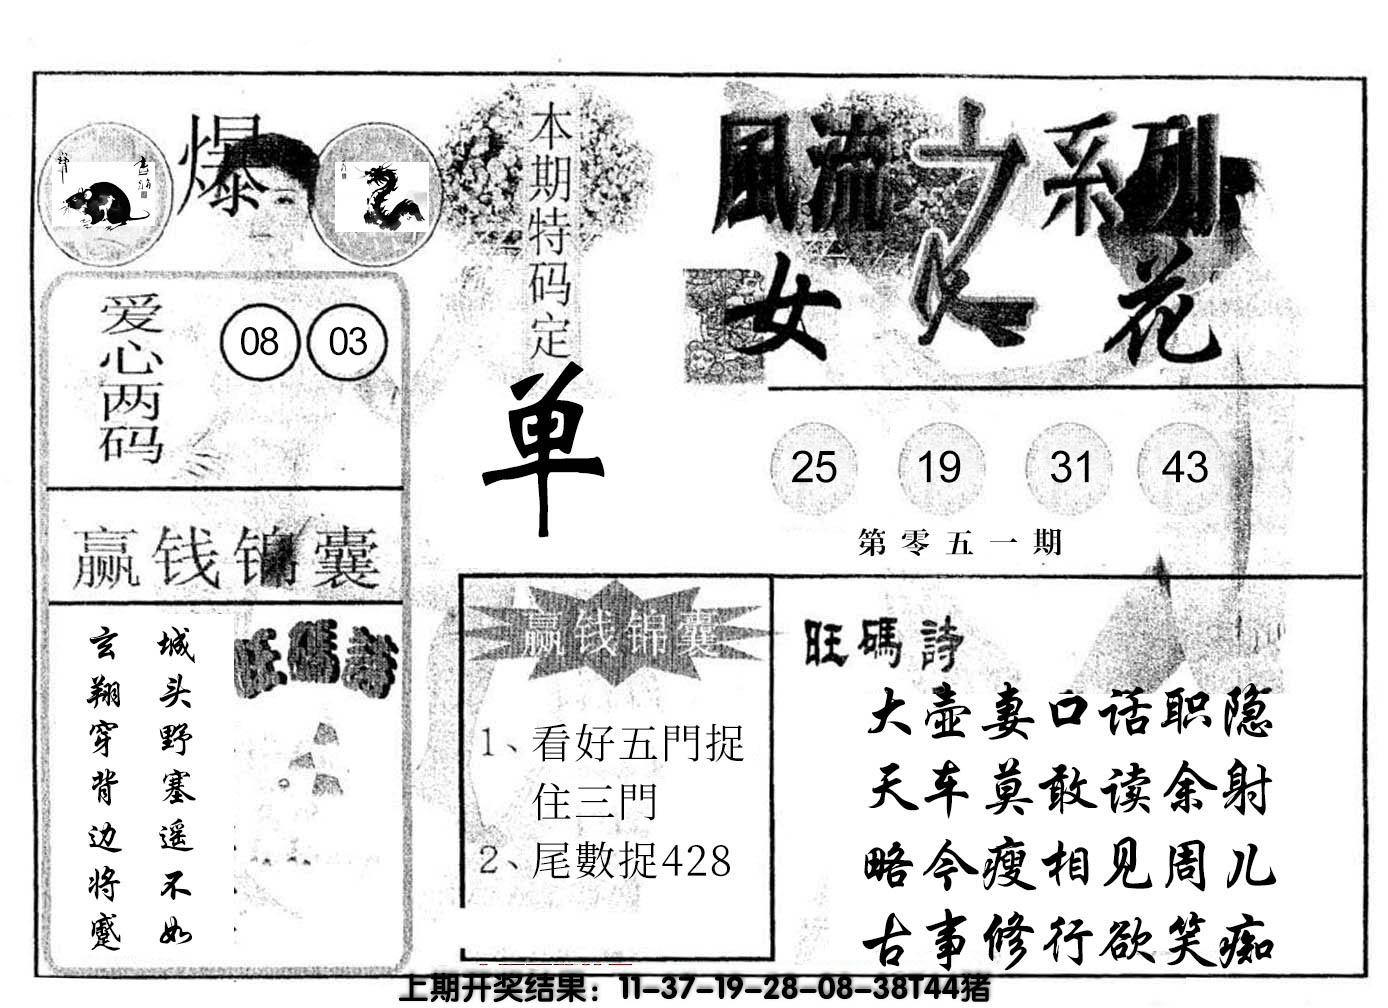 爆
本期特码定
单
風流之系列
女人花
爱心两码
08 03
25 19 31 43
第零五一期
赢钱锦囊
城头野塞遥不如
玄翔穿背边将蹙
旺碼詩
赢钱锦囊
1、看好五門捉
住三門
2、尾數捉428
旺碼詩
大壶妻口话职隐
天车莫敢读余射
略今瘦相见周儿
古事修行欲笑痴
上期开奖结果：11-37-19-28-08-38T44猪